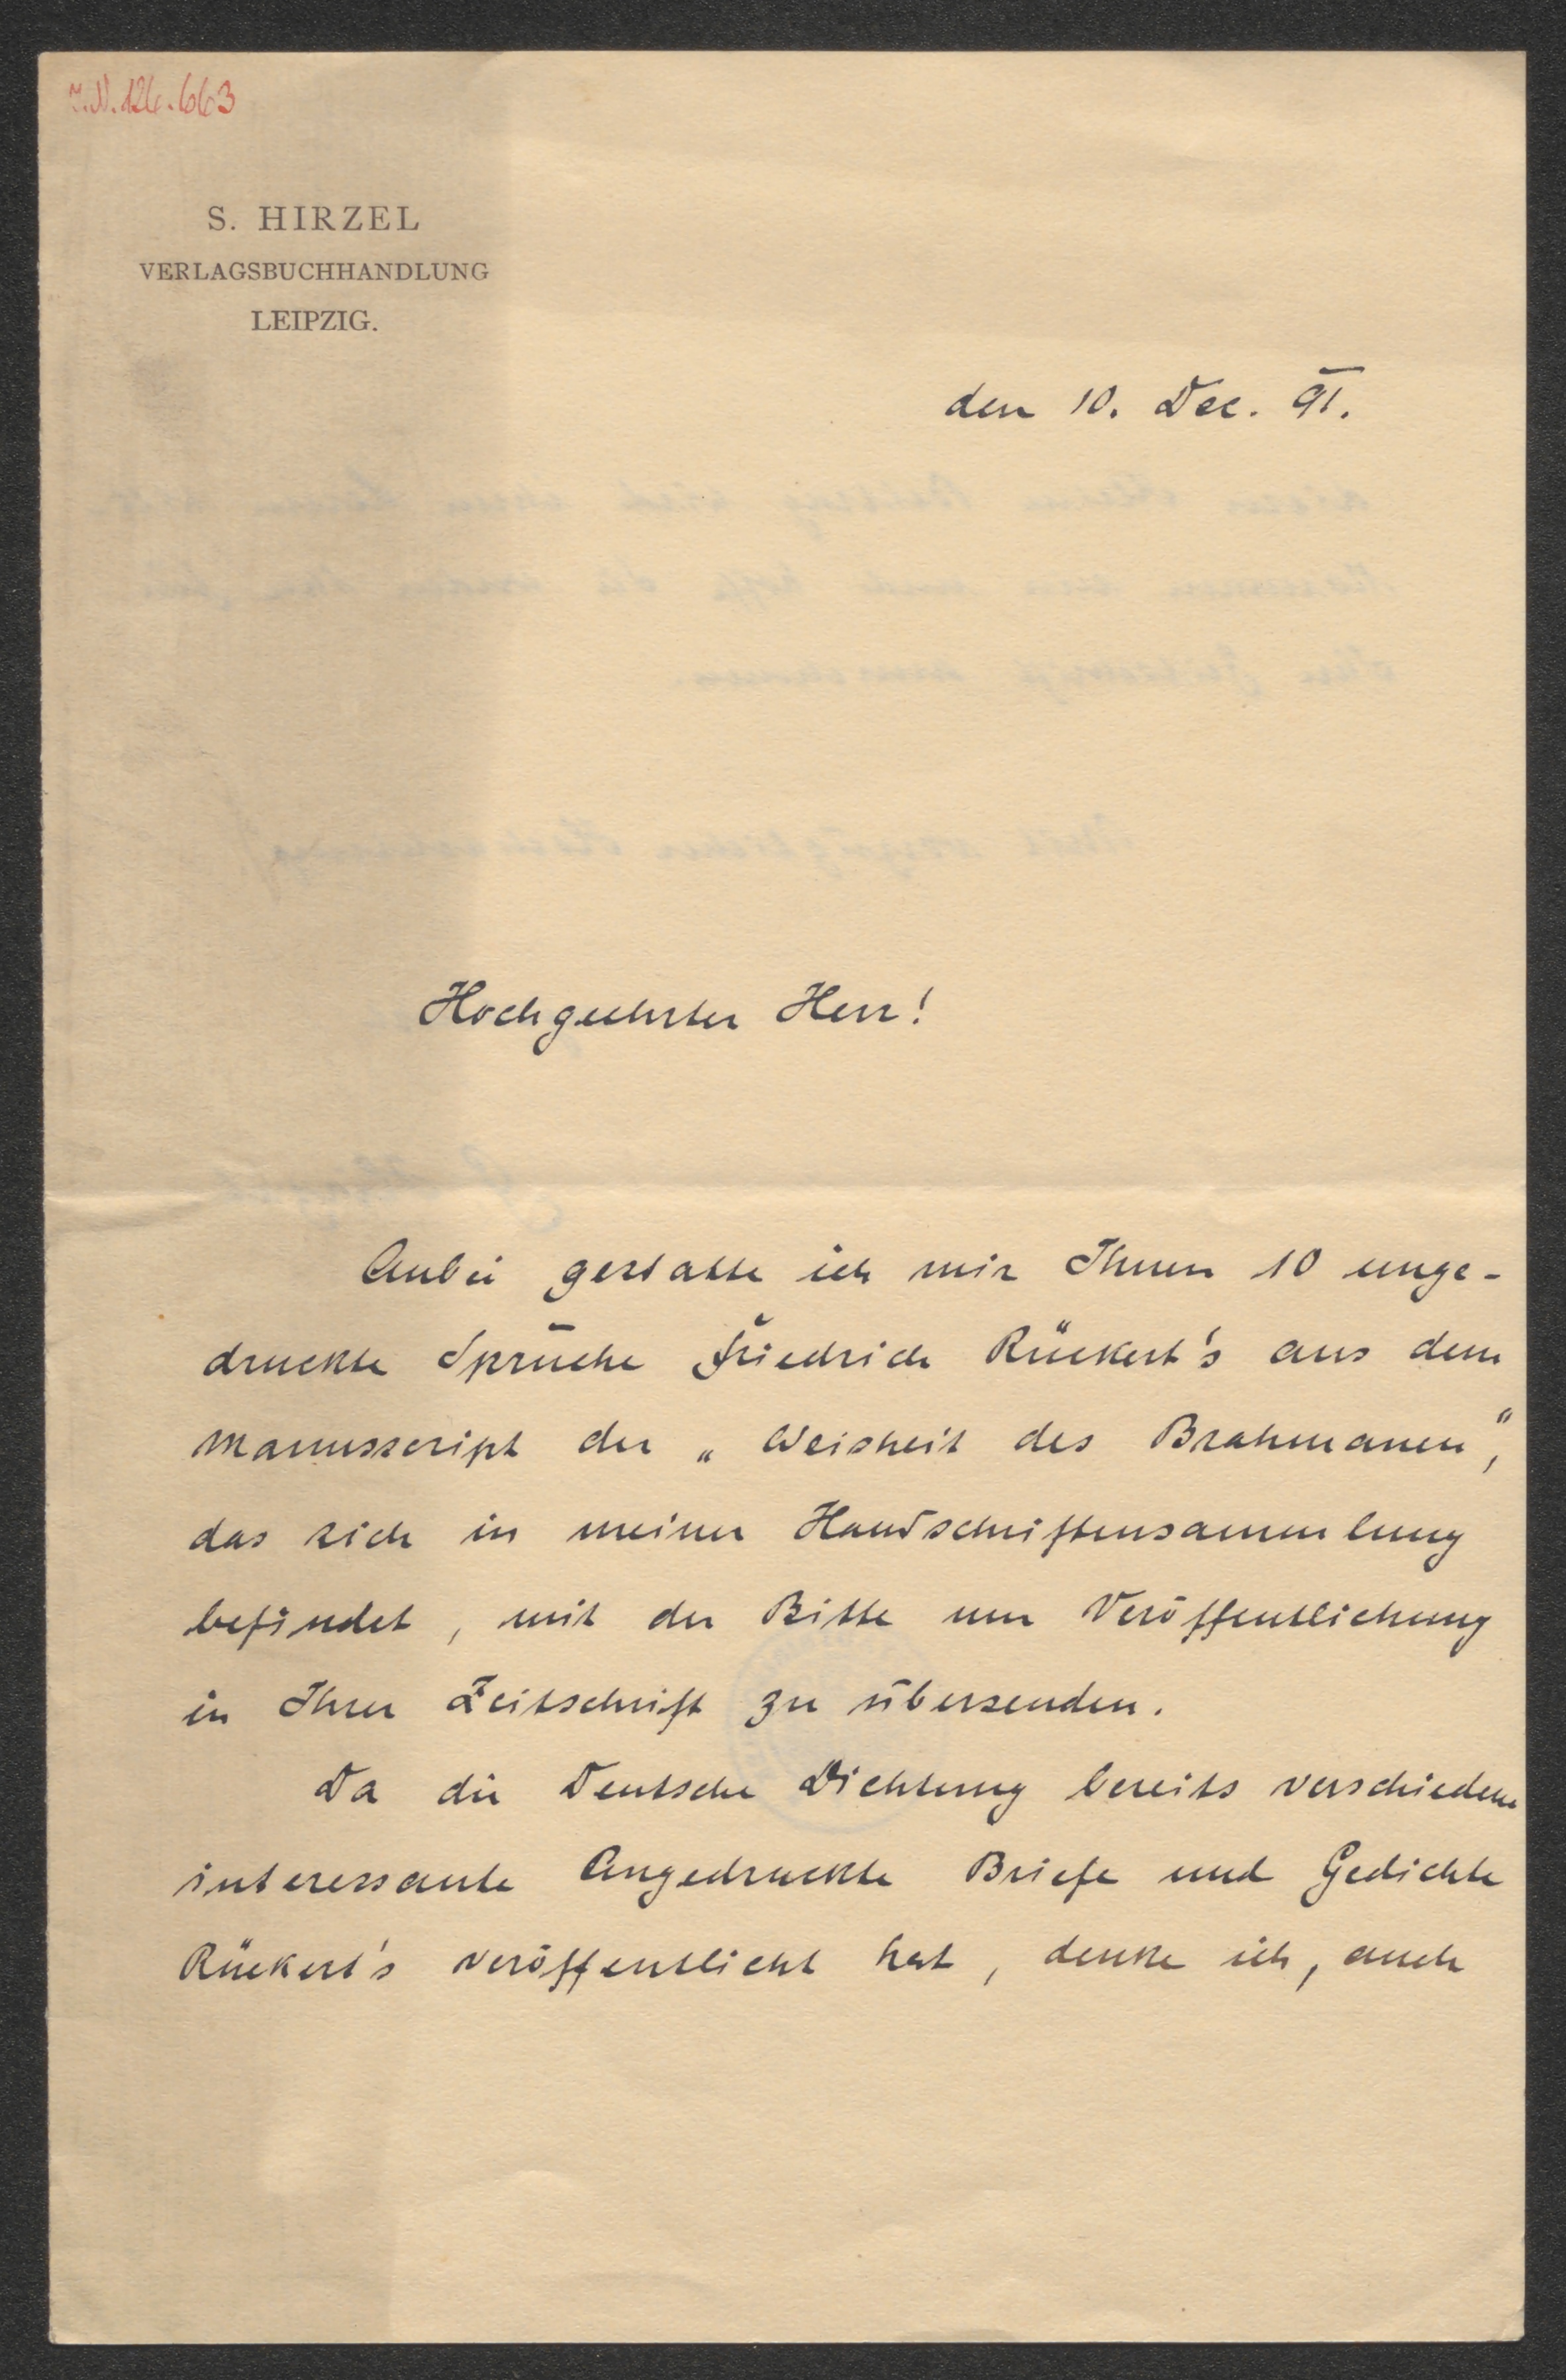 I.N. 124.663
S. HIRZEL
VERLAGSBUCHHANDLUNG
LEIPZIG.
den 10. Dec. 91.
Hochgeehrter Herr!
Anbei gestatte ich mir Ihnen 10 unge-
druckte Sprüche Friedrich Rückert's aus dem
Manusscript der „Weisheit des Brahmanen",
das sich in meiner Handschriftensammlung
befindet, mit der Bitte um Veröffentlichung
in Ihrer Zeitschrift zu übersenden.
Da die Deutsche Dichtung bereits verschiedene
interessante Ungedruckte Briefe und Gedichte
Rückert's veröffentlicht hat, denke ich, auch